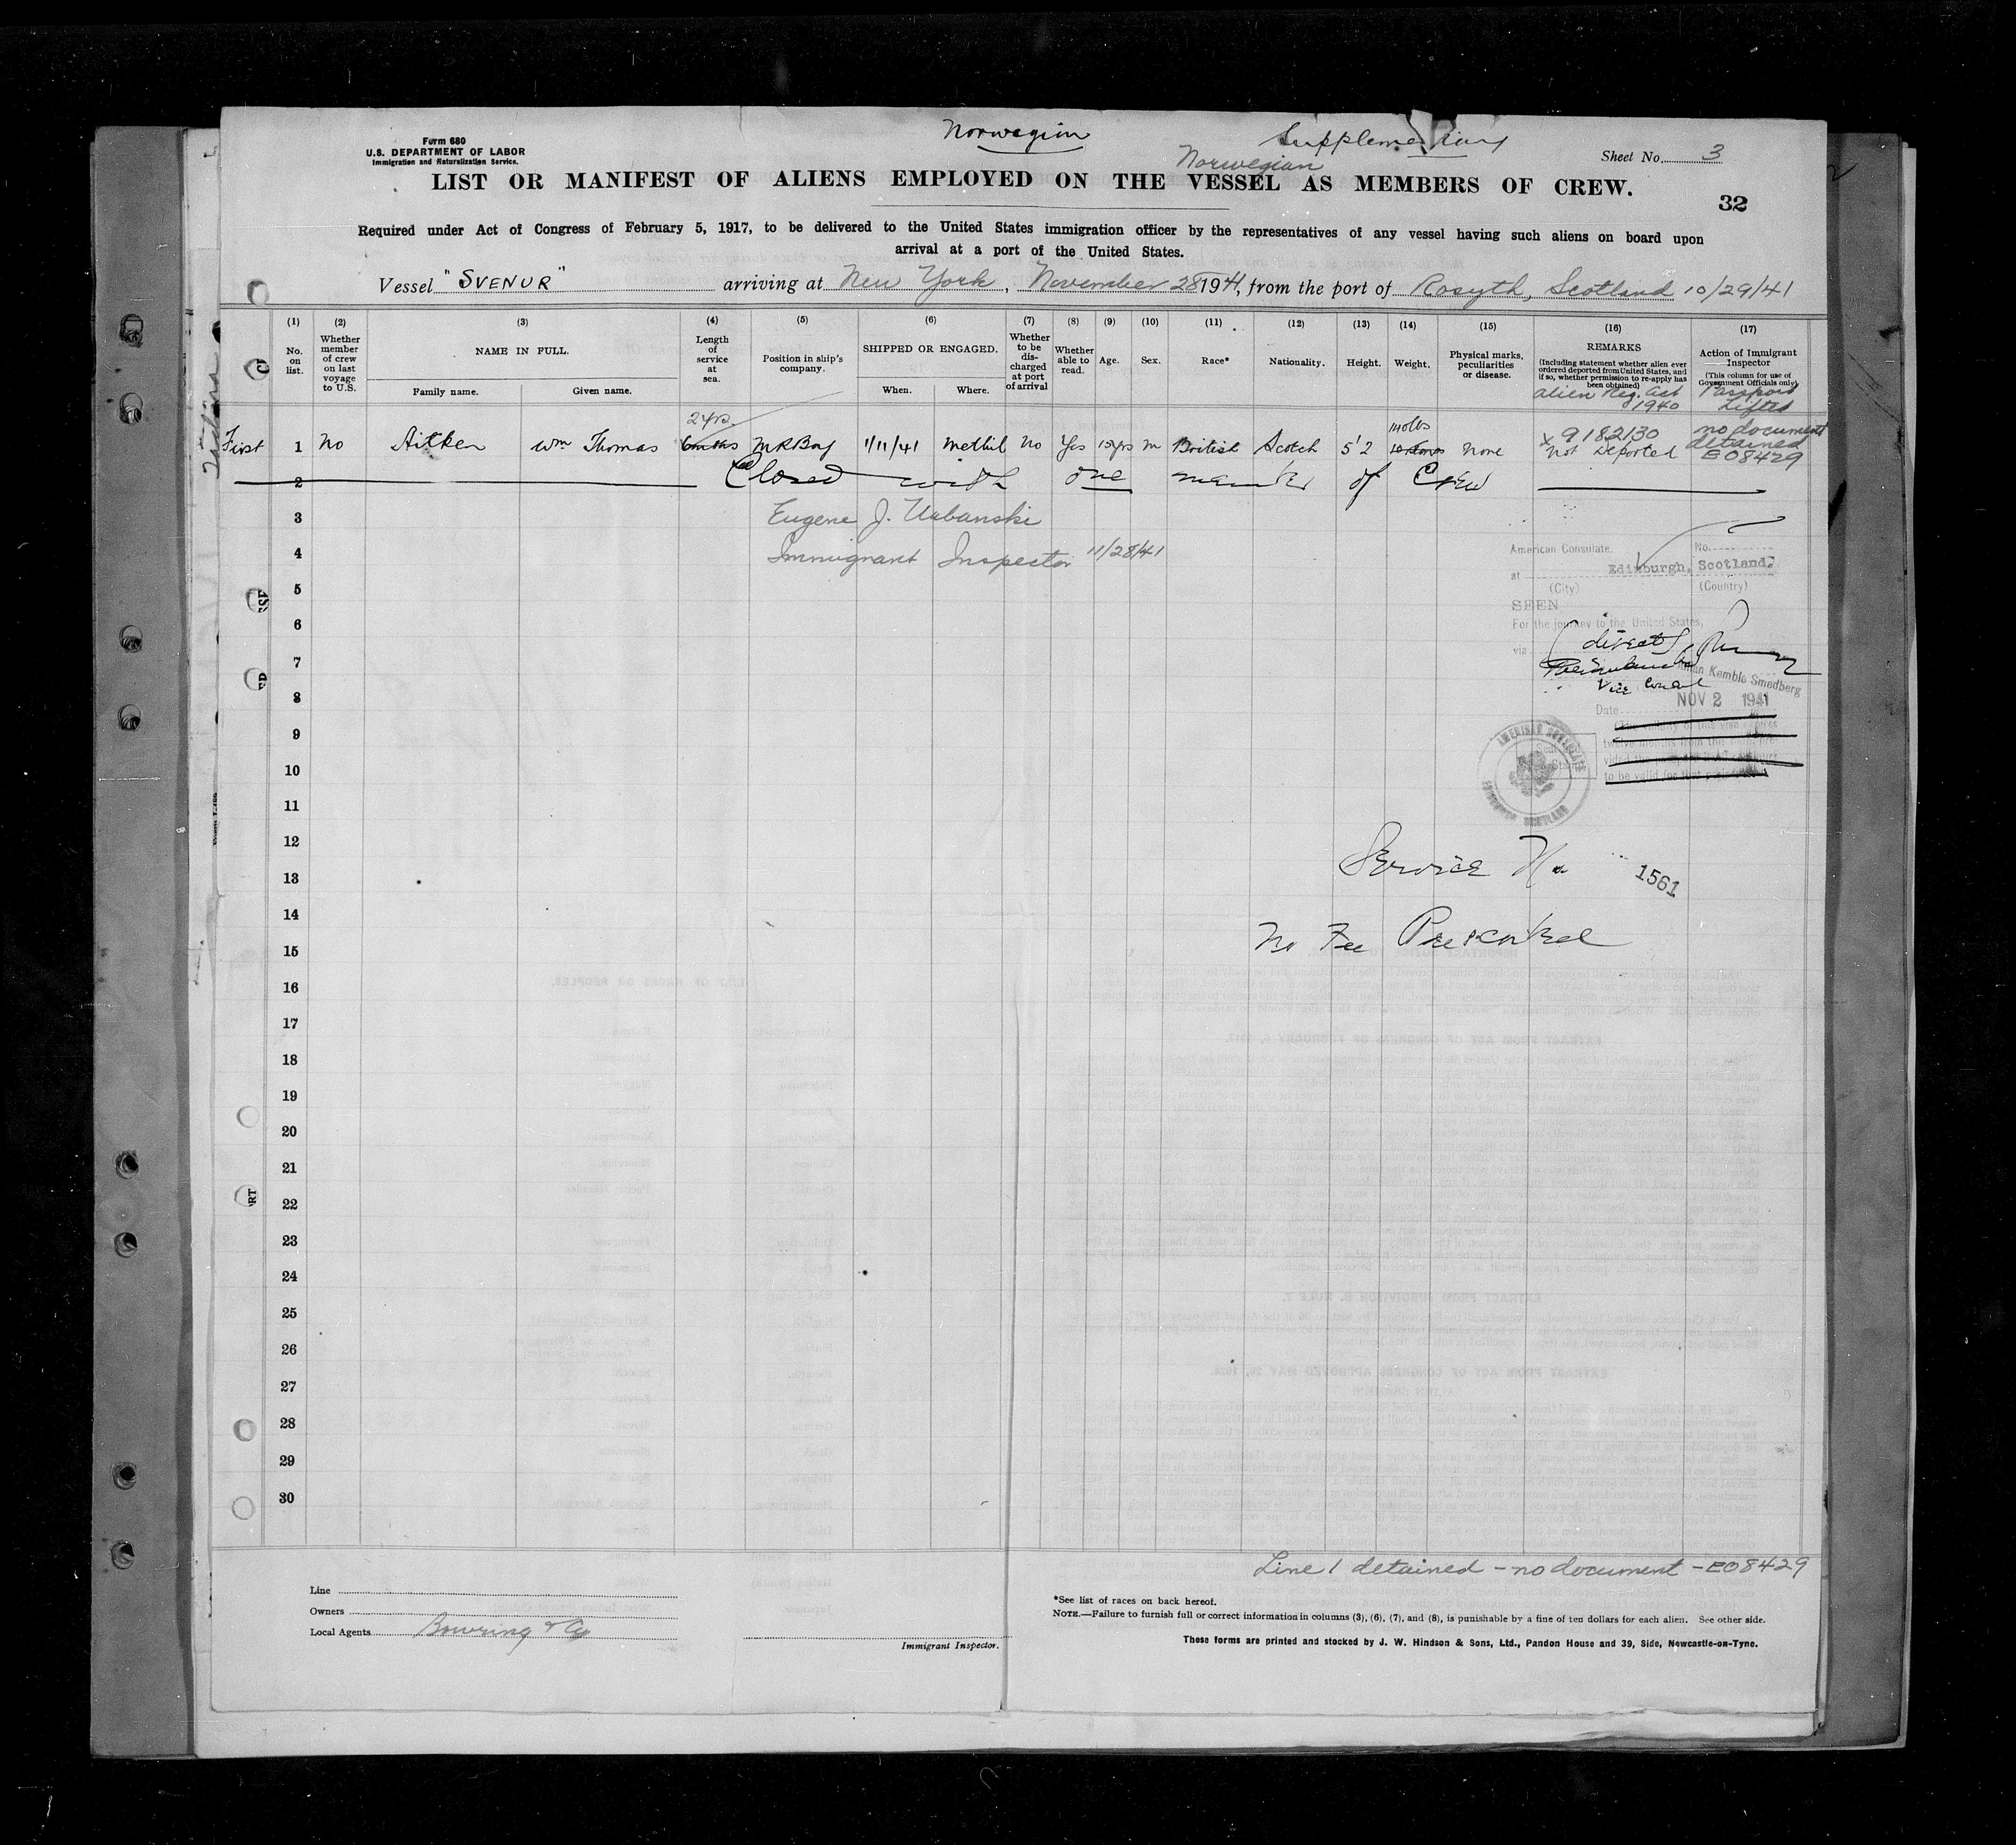 Norwegian
Supplementary
Form 680
U.S. DEPARTMENT OF LABOR
Immigration and Naturalization Service.
Norwegian
Sheet No. 3
LIST OR MANIFEST OF ALIENS EMPLOYED ON THE VESSEL AS MEMBERS OF CREW.
32
Required under Act of Congress of February 5, 1917, to be delivered to the United States immigration officer by the representatives of any vessel having such aliens on board upon
arrival at a port of the United States.
Vessel "SVENOR" arriving at New York, November 28 1941, from the port of Rosyth, Scotland 10/29/41
(1) (2) (3) (4) (5) (6) (7) (8) (9) (10) (11) (12) (13) (14) (15) (16) (17)
No. on list.
Whether member of crew on last voyage to U.S.
NAME IN FULL.
Family name. Given name.
Length of service at sea.
Position in ship's company.
SHIPPED OR ENGAGED.
When. Where.
Whether to be discharged at port of arrival
Whether able to read.
Age.
Sex.
Race*
Nationality.
Height.
Weight.
Physical marks, peculiarities or disease.
REMARKS
(Including statement whether alien ever ordered deported from United States, and if so, whether permission to re-apply has been obtained)
Alien Reg. Act 1940
Action of Immigrant Inspector
(This column for use of Government Officials only)
Passport Lifted
2 yrs.
140 lbs
First 1 No Aitken Wm Thomas MR Boy 1/11/41 Methil No Yes 15 yrs m British Scotch 5'2 None x 9182130 no document
Not Deported detained
E08429
2 Closed with one member of Crew
3 Eugene J. Urbanski
4 Immigrant Inspector 11/28/41
American Consulate. No.
at Edinburgh, Scotland.
(City) (Country)
5
SEEN
6
For the journey to the United States,
via direct
7
Kemble Smedberg
Vice Consul
8
Date NOV 2 1941
9
AMERICAN CONSULATE
EDINBURGH SCOTLAND
10
11
12
13 Service No 1561
14
15 No Fee Prescribed
16
17
18
19
20
21
22
23
24
25
26
27
28
29
30
Line 1 detained - no document - E08429
Line
Owners
Local Agents Bowring & Co
Immigrant Inspector.
*See list of races on back hereof.
NOTE.—Failure to furnish full or correct information in columns (3), (6), (7), and (8), is punishable by a fine of ten dollars for each alien. See other side.
These forms are printed and stocked by J. W. Hindson & Sons, Ltd., Pandon House and 39, Side, Newcastle-on-Tyne.